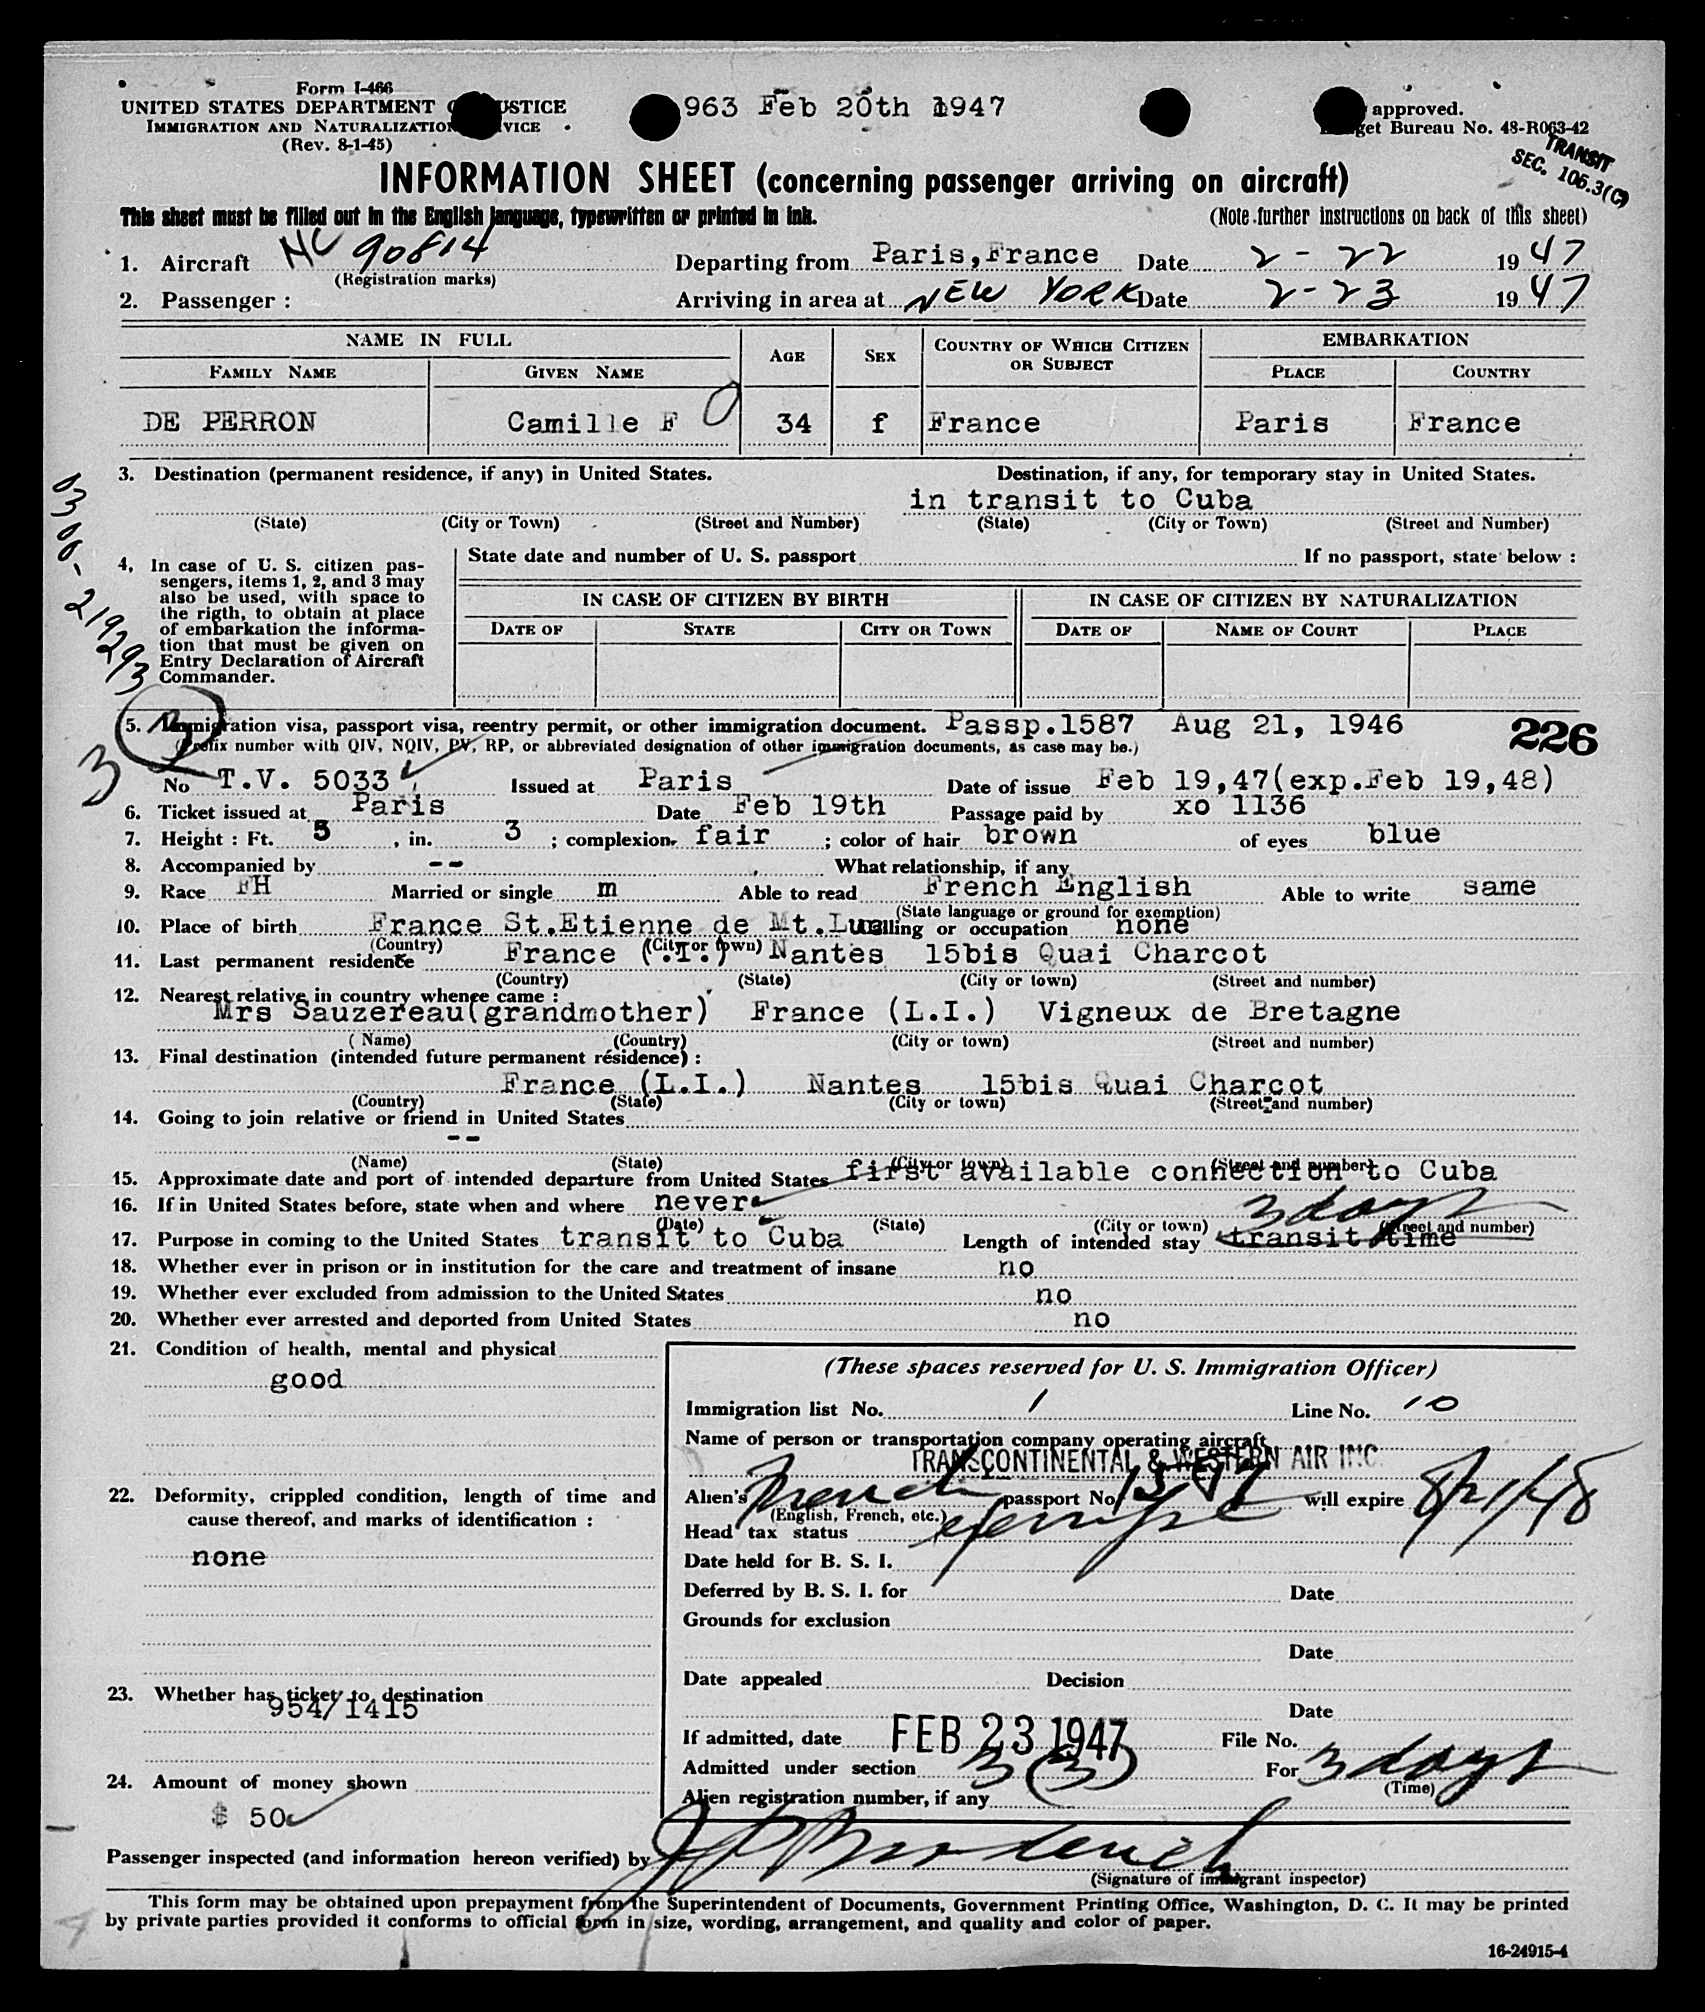 Form I-466
UNITED STATES DEPARTMENT JUSTICE 963 Feb 20th 1947 approved.
IMMIGRATION AND NATURALIZATION Bureau No. 48-R063-42
(Rev. 8-1-45)
TRANSIT
SEC. 105.3(C)
INFORMATION SHEET (concerning passenger arriving on aircraft)
This sheet must be filled out in the English language, typewritten or printed in ink. (Note further instructions on back of this sheet)
1. Aircraft NC 90814 Departing from Paris,France Date 2-22 1947
(Registration marks)
2. Passenger : Arriving in area at NEW YORK Date 2-23 1947
NAME IN FULL AGE SEX COUNTRY OF WHICH CITIZEN OR SUBJECT EMBARKATION
FAMILY NAME GIVEN NAME PLACE COUNTRY
DE PERRON Camille F 34 f France Paris France
3. Destination (permanent residence, if any) in United States. Destination, if any, for temporary stay in United States.
in transit to Cuba
(State) (City or Town) (Street and Number) (State) (City or Town) (Street and Number)
0300-219293
4, In case of U. S. citizen pas-
sengers, items 1, 2, and 3 may
also be used, with space to
the rigth, to obtain at place
of embarkation the informa-
tion that must be given on
Entry Declaration of Aircraft
Commander.
State date and number of U. S. passport If no passport, state below :
IN CASE OF CITIZEN BY BIRTH IN CASE OF CITIZEN BY NATURALIZATION
DATE OF STATE CITY OR TOWN DATE OF NAME OF COURT PLACE
5. Immigration visa, passport visa, reentry permit, or other immigration document. Passp.1587 Aug 21, 1946 226
(Prefix number with QIV, NQIV, PV, RP, or abbreviated designation of other immigration documents, as case may be.)
3
No T.V. 5033 Issued at Paris Date of issue Feb 19,47(exp.Feb 19,48)
6. Ticket issued at Paris Date Feb 19th Passage paid by xo 1136
7. Height : Ft. 5 , in. 3 ; complexion. fair ; color of hair brown of eyes blue
8. Accompanied by -- What relationship, if any
9. Race FH Married or single m Able to read French English Able to write same
(State language or ground for exemption)
10. Place of birth France St.Etienne de Mt.Luc Calling or occupation none
(Country) (City or town)
11. Last permanent residence France (.I.) Nantes 15bis Quai Charcot
(Country) (State) (City or town) (Street and number)
12. Nearest relative in country whence came :
Mrs Sauzereau(grandmother) France (L.I.) Vigneux de Bretagne
(Name) (Country) (City or town) (Street and number)
13. Final destination (intended future permanent résidence) :
France (L.I.) Nantes 15bis Quai Charcot
(Country) (State) (City or town) (Street and number)
14. Going to join relative or friend in United States
--
(Name) (State) (City or town) (Street and number)
15. Approximate date and port of intended departure from United States first available connection to Cuba
16. If in United States before, state when and where never
3 days
(Date) (State) (City or town) (Street and number)
17. Purpose in coming to the United States transit to Cuba Length of intended stay transit time
18. Whether ever in prison or in institution for the care and treatment of insane no
19. Whether ever excluded from admission to the United States no
20. Whether ever arrested and deported from United States no
21. Condition of health, mental and physical
good
22. Deformity, crippled condition, length of time and
cause thereof, and marks of identification :
none
23. Whether has ticket to destination
954/1415
24. Amount of money shown
$ 50
(These spaces reserved for U. S. Immigration Officer)
Immigration list No. 1 Line No. 10
Name of person or transportation company operating aircraft
TRANSCONTINENTAL & WESTERN AIR INC.
Alien's French passport No 1587 will expire 8/21/48
(English, French, etc.)
Head tax status exempt
Date held for B. S. I.
Deferred by B. S. I. for Date
Grounds for exclusion
Date
Date appealed Decision
Date
If admitted, date FEB 23 1947 File No.
Admitted under section 3 (3) For 3 days
(Time)
Alien registration number, if any
Passenger inspected (and information hereon verified) by
(Signature of immigrant inspector)
This form may be obtained upon prepayment from the Superintendent of Documents, Government Printing Office, Washington, D. C. It may be printed
by private parties provided it conforms to official form in size, wording, arrangement, and quality and color of paper.
16-24915-4